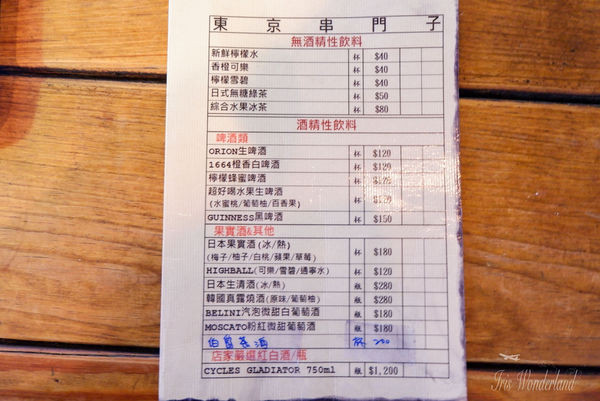 東京串門子
無酒精性飲料
新鮮檸檬水 杯 $40
香橙可樂 杯 $40
檸檬雪碧 杯 $40
日式無糖綠茶 杯 $50
綜合水果冰茶 杯 $80
酒精性飲料
啤酒類
ORION生啤酒 杯 $120
1664橙香白啤酒 杯 $120
檸檬蜂蜜啤酒 杯 $120
超好喝水果生啤酒 杯
(水蜜桃/葡萄柚/百香果)
GUINNESS黑啤酒 杯 $150
果實酒&其他
日本果實酒(冰/熱) 杯 $180
(梅子/柚子/白桃/蘋果/草莓)
HIGHBALL(可樂/雪碧/通寧水) 杯 $120
日本生清酒(冰/熱) 瓶 $280
韓國真露燒酒(原味/葡萄柚) 瓶 $280
BELINI汽泡微甜白葡萄酒 瓶 $180
MOSCATO粉紅微甜葡萄酒 瓶 $180
伯爵茶酒 杯 200
店家嚴選紅白酒/瓶
CYCLES GLADIATOR 750ml 瓶 $1,200
Iris Wonderland